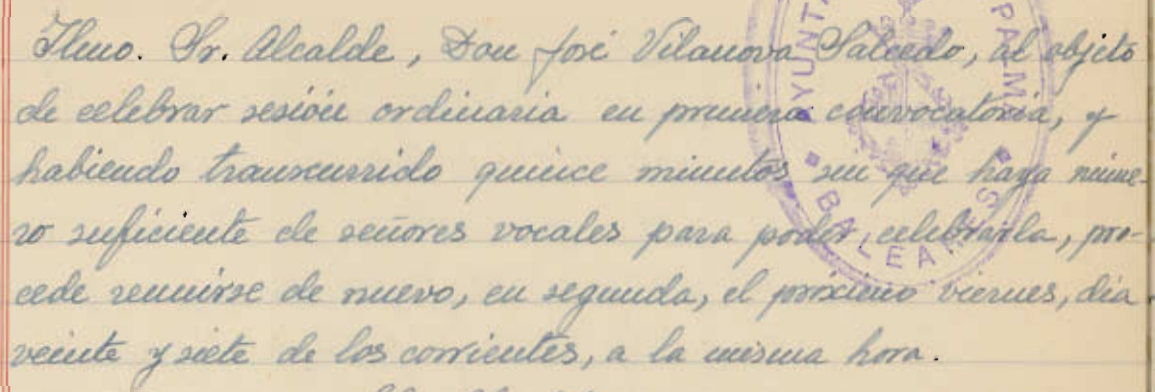 Ilmo. Sr. Alcalde, Don José Vilanova Salcedo, al objeto
de celebrar sesión ordinaria en primera convocatoria, y
habiendo transcurrido quince minutos sin que haya núme-
ro suficiente de señores vocales para poder celebrarla, pro-
cede reunirse de nuevo, en segunda, el próximo viernes, día
veinte y siete de los corrientes, a la misma hora.
AYUNTA PALMA
BALEARES